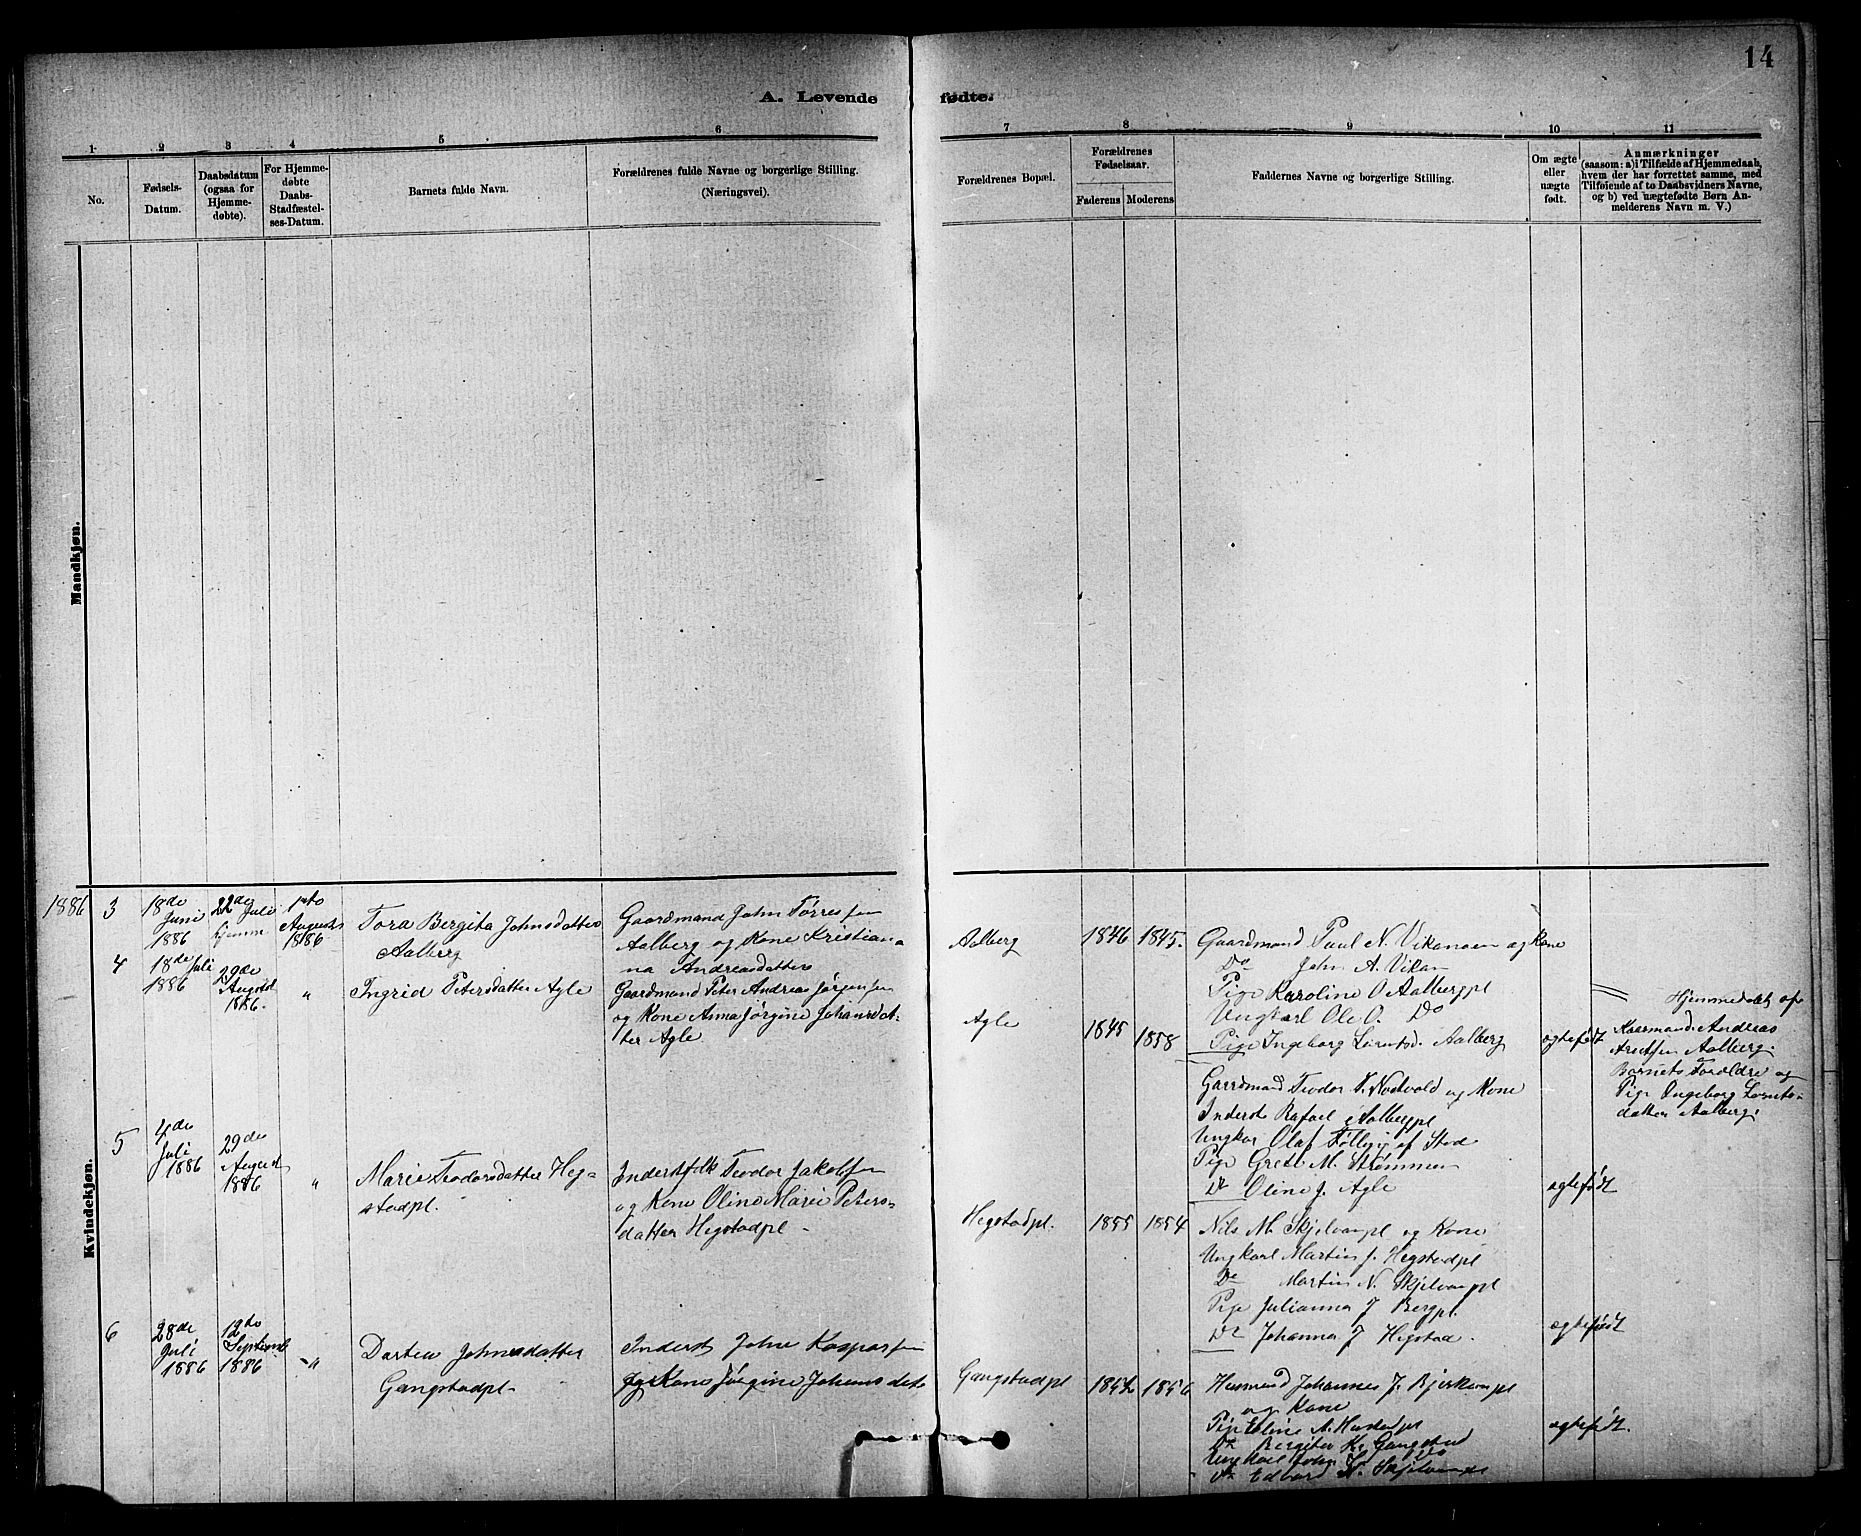 14
A. Levende fødte.
1 2 3 4 5 6 7 8 9 10 11
No.
Fødsels-
Datum.
Daabsdatum
(ogsaa for
Hjemme-
døbte).
For Hjemme-
døbte
Daabs-
Stadfæstel-
ses-Datum.
Barnets fulde Navn.
Forældrenes fulde Navne og borgerlige Stilling.
(Næringsvei).
Forældrenes Bopæl.
Forældrenes
Fødselsaar.
Faderens
Moderens
Faddernes Navne og borgerlige Stilling.
Om ægte
eller
uægte
født.
Anmærkninger
(saasom: a) i Tilfælde af Hjemmedaab,
hvem der har forrettet samme, med
Tilføiende af to Daabsvidners Navne,
og b) ved uægtefødte Børn An-
melderens Navn m. V.)
Mandkjøn.
Kvindekjøn.
1886
3
18de
Juni
1886
22de
Juli
hjemme
1ste
August
1886
Tora Bergita Johnsdatter
Aalberg
Gaardmand John Tørressen
Aalberg og Kone Kristian
na Andreasdatter
Aalberg
1846
1845.
Gaardmand Paul N. Vikanaen og Kone
Do John A. Vikan
Pige Karoline O Aalbergpl
Ungkarl Ole O. Do
Pige Ingeborg Lorntsd. Aalberg
ægtefødt
Hjemmedøbt af
Kaarmand Andreas
Aalberg.
Barnets Foroldre og
Pige Ingeborg Lornts-
datter Aalberg.
4
18de Juli
1886
29de
August
1886.
"
Ingrid Petersdatter Agle
Gaardmand Peter Andreas Jørgensen
og Kone Anna Jørgine Johansdat-
ter Agle
Agle
1845
1858
Gaardmand Teodor T. Nodvold og Kone
Inderst Rafael Aalbergpl
Ungkar Olaf Følling af Stod
Pige Gretl M. Strømmen
Do Oline J. Agle
ægtefødt
5
4de
Juli
1886
29de
August
1886
"
Marie Teodorsdatter Heg-
stadpl.
Inderstfolk Teodor Jakobsen
og Kone Oline Marie Peters-
datter Hegstadpl -
Hegstadpl.
1855
1854
Nils M. Skjelvanpl og Kone
Ungkarl Martin J. Hegstadpl
Do Martin N. Skjelvanpl
Pige Julianna J Bergpl.
Do Johanna J Hegstad.
ægtefødt
6
28de
Juli
1886
12te
Septemb
1886
"
Dortea Johnsdatter
Gangstadpl-
Inderst John Kaspersen
og Kone Jørgine Johansdat
Gangstadpl
1852
1856
Husmand Johannes J. Bjerkempl
og Kone
Pige Eline A. Hustadpl
Do Bergitta K. Gangstad
Ungkarl John
Do Edvard N. Skjelvanpl
ægtefødt.